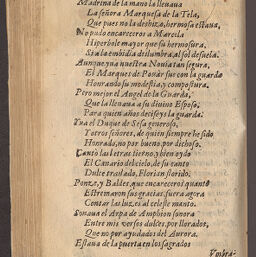 Madrina de la mano la lleuaua
La señora Marquesa de la Tela,
Que pues no la deshizo, hermosa estaua,
No pudo encareceros a Marcela
Hiperbole mayor que su hermosura,
Si a la embidia deslumbra, al sol desuela.
Aunque yua nuestra Nouia tan segura,
El Marques de Pouàr fue con la guarda
Honrando su modestia, y compostura,
Pero mejor el Angel de la Guarda,
Que la lleuaua a su diuino Esposo,
Para quien años decisèys la guarda:
Yua el Duque de Sesa generoso,
Y otros señores, de quien siempre he sido
Honrado, no por bueno, por dichoso.
Cantò las letras tierno, y bien oydo
El Canario del cielo, de su canto
Dulce traslado, Florian florido.
Ponze, y Baldes, que encareceros quanto
Estremaron sus gracias, fuera agora
Contar las luzes al celeste manto.
Sonaua el Arpa de Amphion sonora
Entre mis versos dulces, por llorados,
Que no por ayudados del Aurora.
Estaua de la puerta en los sagrados